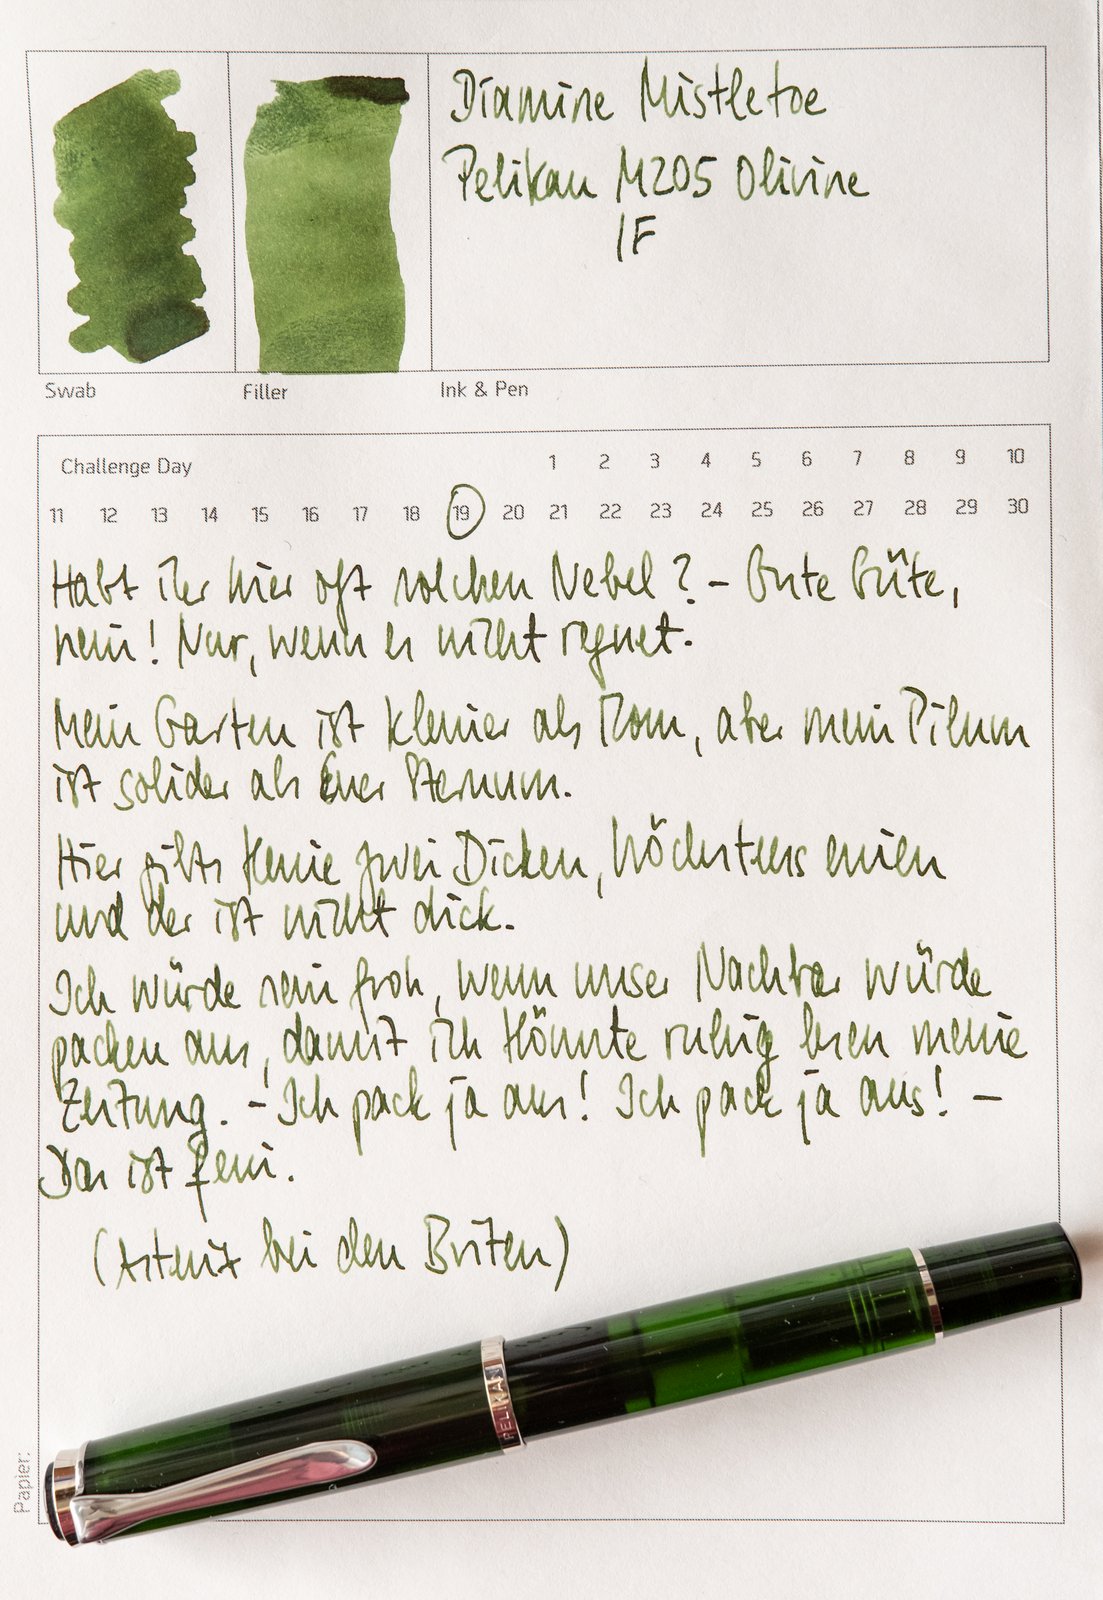 Diamine Mistletoe
Pelikan M205 Olivine
IF
Swab
Filler
Ink & Pen
Challenge Day 1 2 3 4 5 6 7 8 9 10
11 12 13 14 15 16 17 18 19 20 21 22 23 24 25 26 27 28 29 30
Habt ihr hier oft solchen Nebel? – Gute Güte,
nein! Nur, wenn es nicht regnet.
Mein Garten ist kleiner als Rom, aber mein Pilum
ist solider als Euer Sternum.
Hier gibts keine zwei Dicken, höchstens einen
und der ist nicht dick.
Ich würde sein froh, wenn unser Nachbar würde
packen aus, damit ich könnte ruhig lesen meine
Zeitung. – Ich pack ja aus! Ich pack ja aus! –
Das ist fein.
(Asterix bei den Briten)
PELIKAN
Papier: